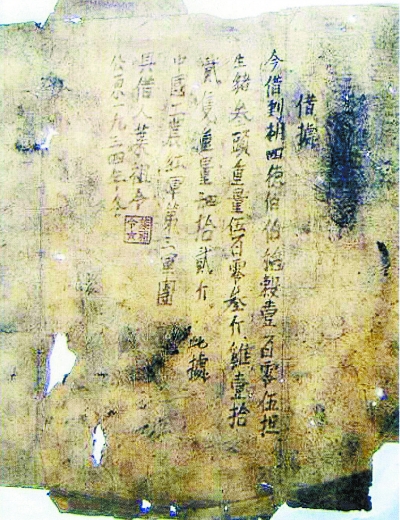 借據
今借到胡四德伯伯稻穀壹百零伍担
生豬叁頭重量伍百零叁斤雞壹拾
貳隻重量肆拾貳斤。此據
中國工農紅軍第三軍團
具借人葉祖令
公元一九三四年冬
葉祖令